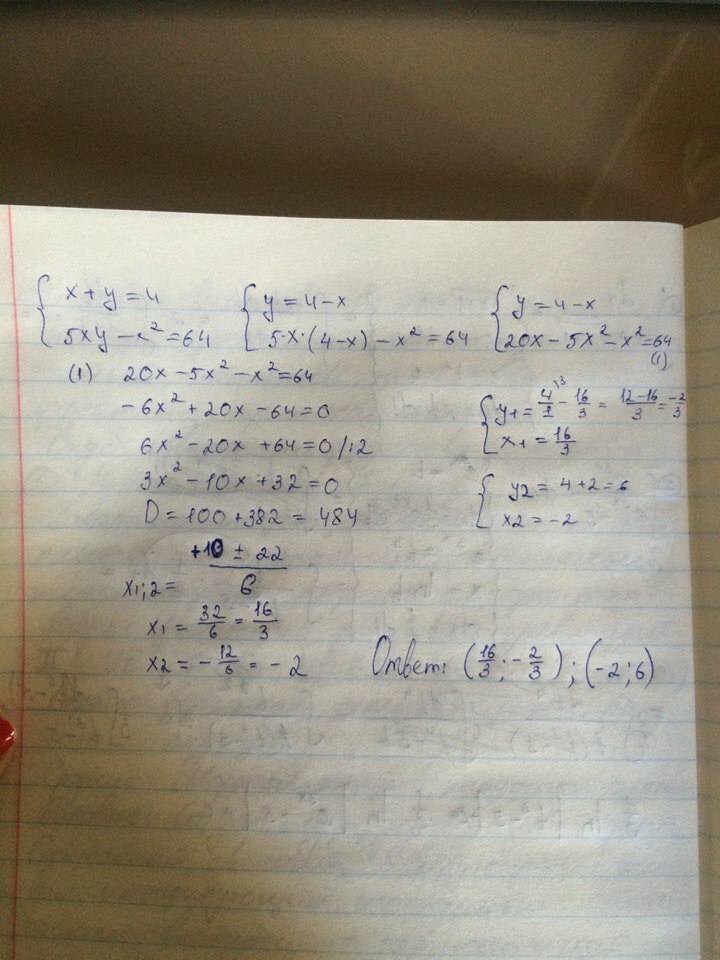 { x + y = 4
5xy − x² = 64
{ y = 4 − x
5·x·(4−x) − x² = 64
{ y = 4 − x
20x − 5x² − x² = 64
(1)
(1) 20x − 5x² − x² = 64
−6x² + 20x − 64 = 0
6x² − 20x + 64 = 0 /:2
3x² − 10x + 32 = 0
D = 100 + 382 = 484
x1;2 = (+10 ± 22)/6
x1 = 32/6 = 16/3
x2 = −12/6 = −2
{ y1 = 4/1 \3 − 16/3 = (12−16)/3 = −2/3
x1 = 16/3
{ y2 = 4 + 2 = 6
x2 = −2
Ответ: (16/3; −2/3); (−2; 6)